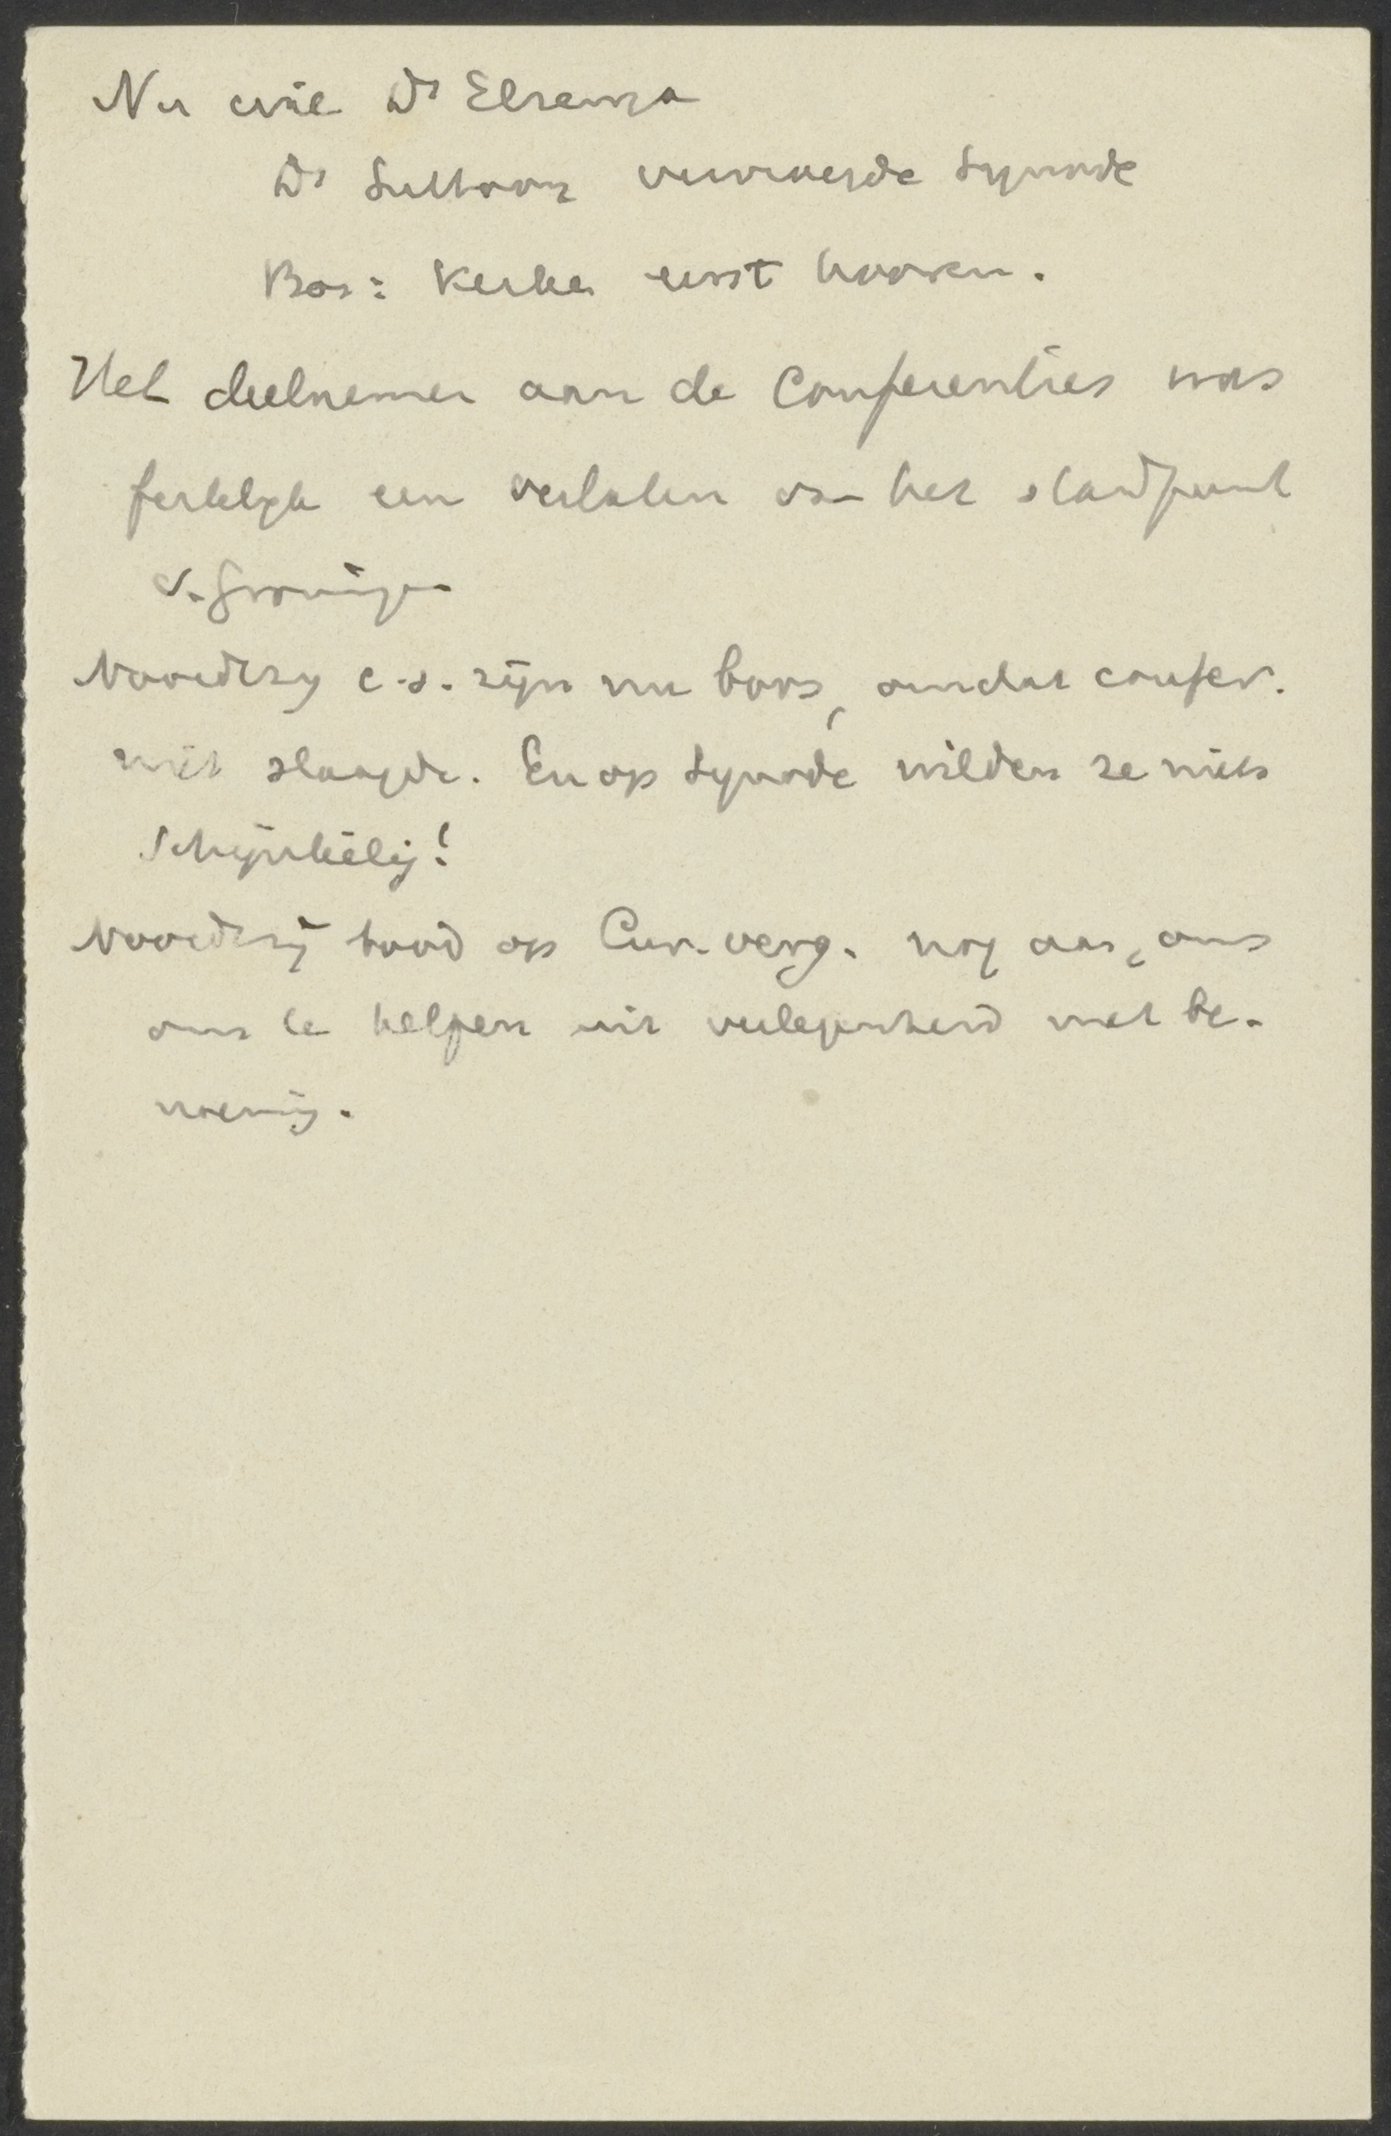 Nu wil Ds Elzenga
Ds Littooy vervroegde Synode
Bos: Kerken eerst hooren.
Het deelnemen aan de Conferenties was
feitelijk een verlaten van het standpunt
v. Groningen
Noordtzy c.s. zijn nu boos, omdat confer.
niet slaagde. En op Synode wilden ze niets
Schijnheilig!
Noordtzij bood op Cur. verg. nog aan, ons
om te helpen uit verlegenheid met be-
noeming.